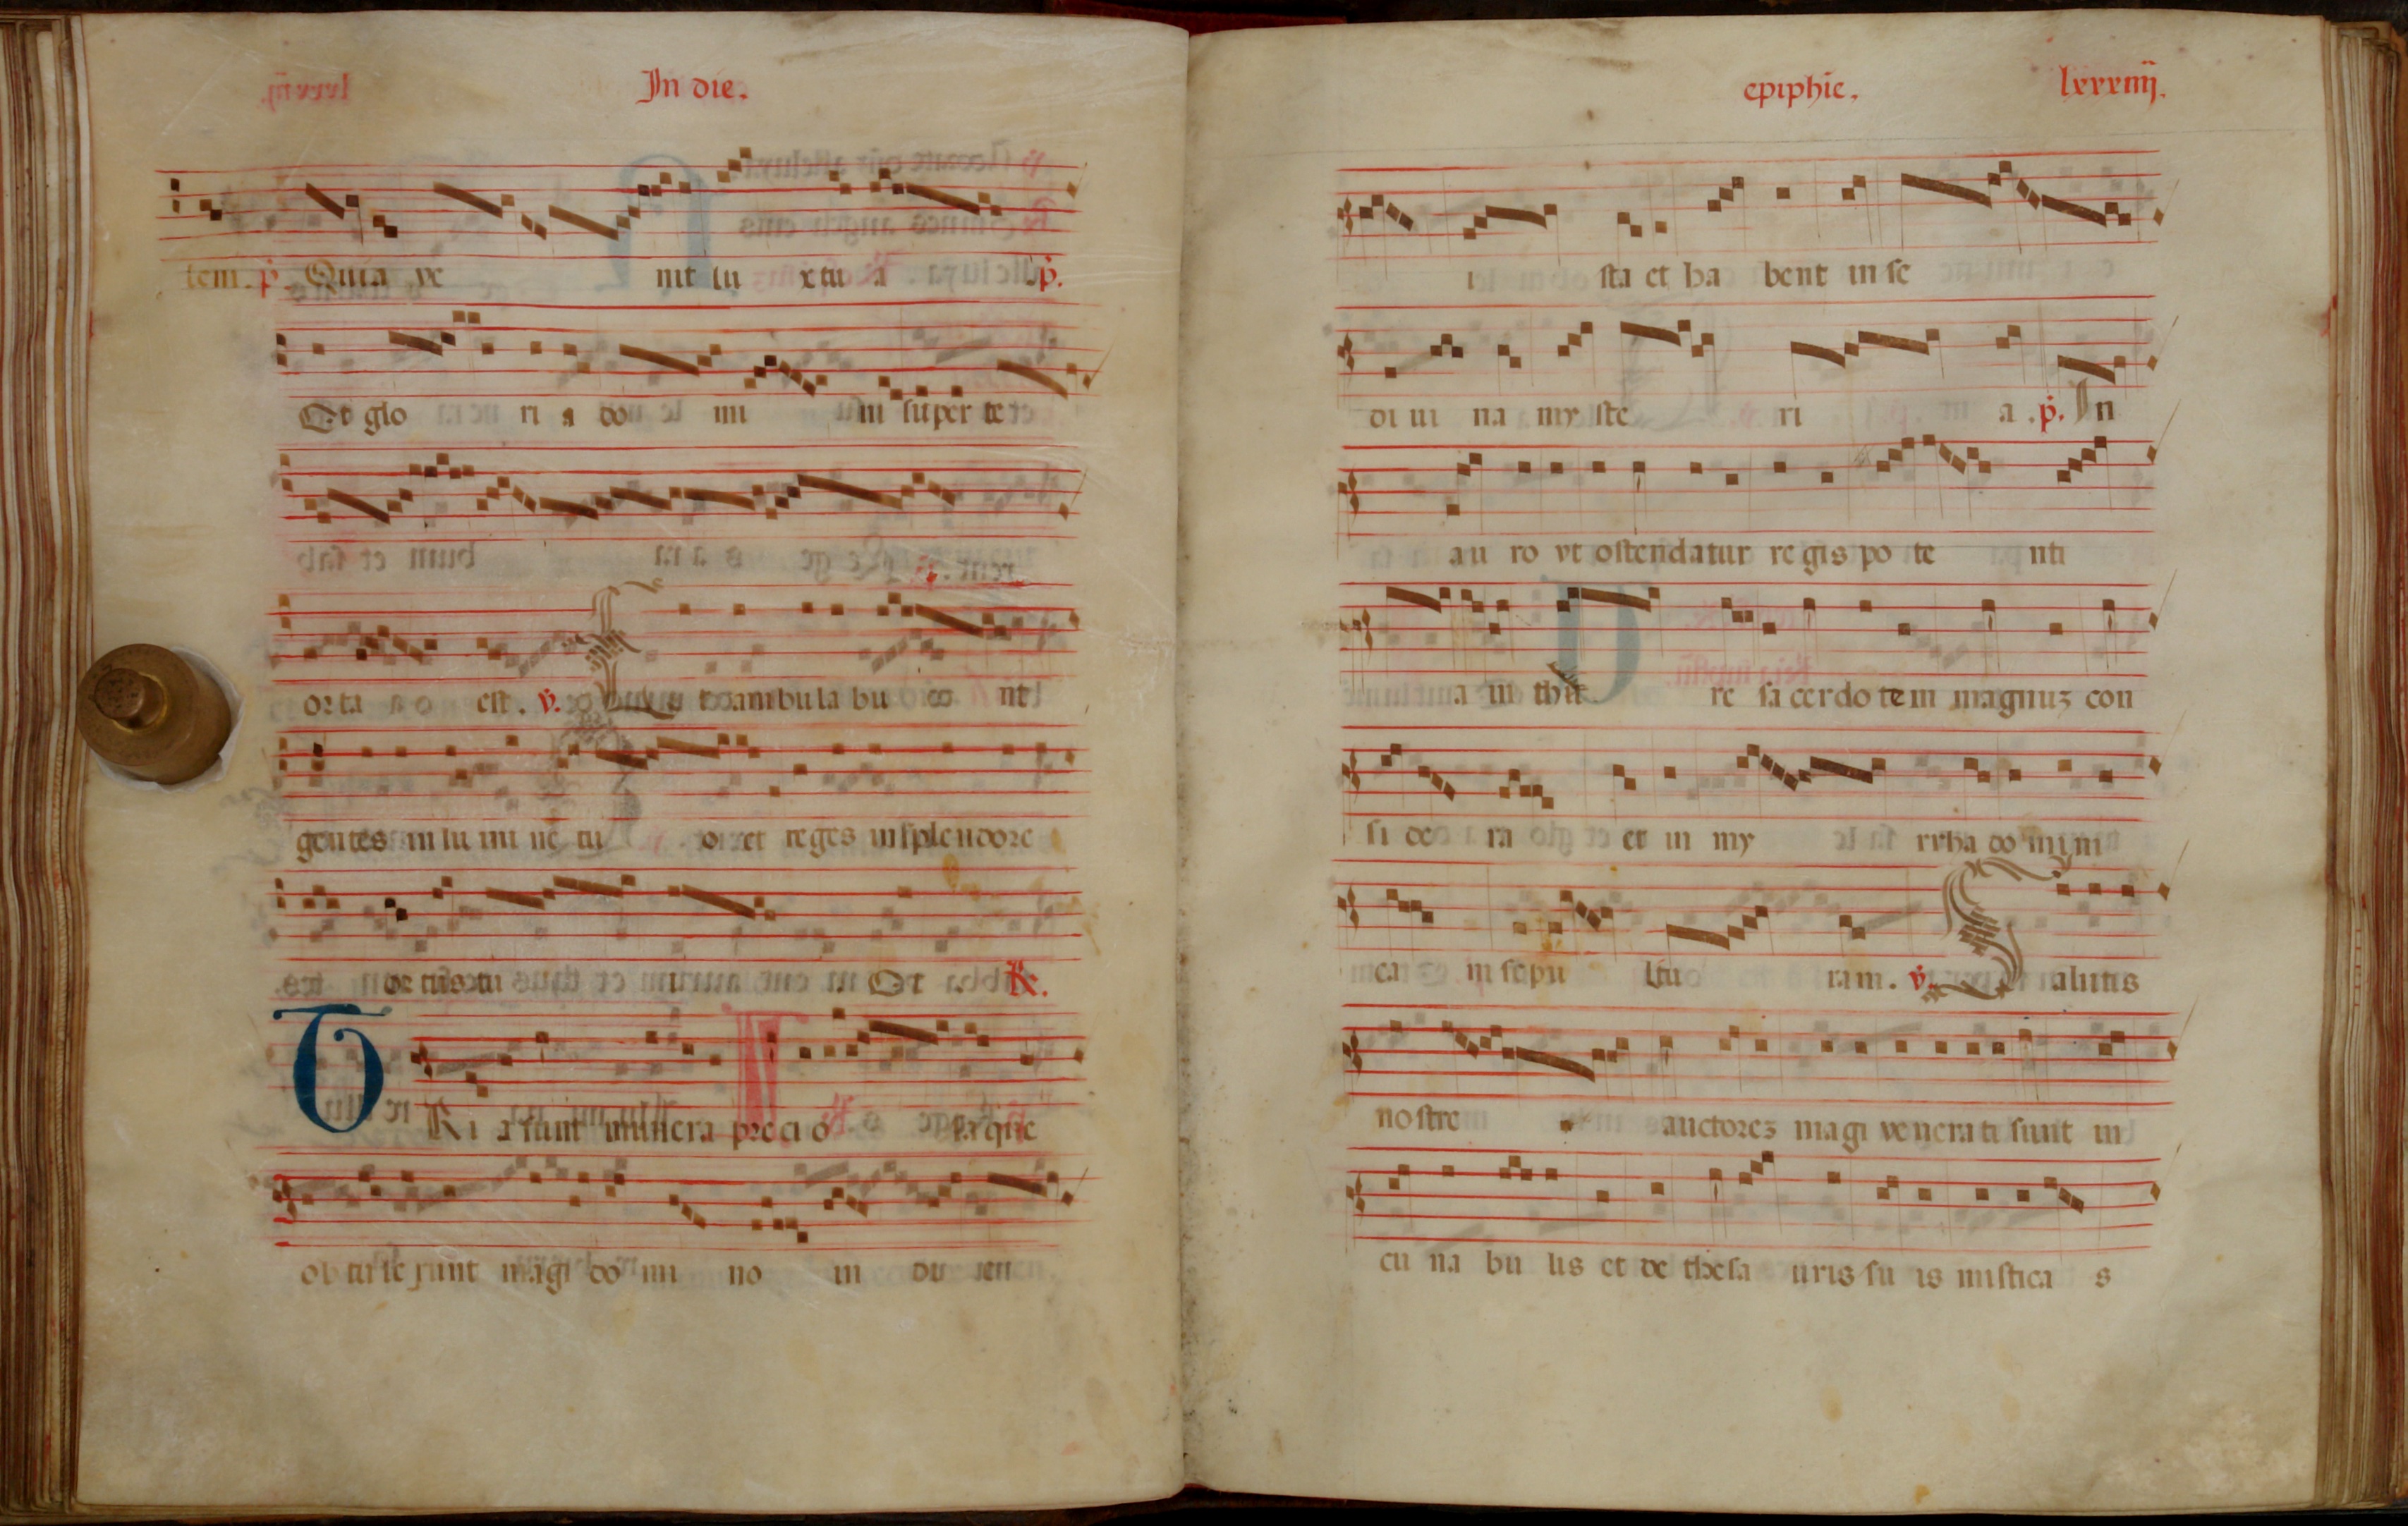 In die.
tem. p̄. Quia ve nit lu x tu a p̄.
Et glo ri a do mi ni super te
orta est. v. Et ambula bu nt
gentes in lu mi ne tu o et reges in splendore
or tus tu i Et ℟.
TRi a sunt munera preci o sa que
ob tu le runt magi do mi no in di ien
epiphīe. lxxxiiij.
i sta et ha bent in se
di ui na my ste ri a . p̄. In
au ro vt ostendatur regis po te nti
a in thu re sa cerdo tem magnuʒ con
si de ra et in my rrha do mini
ca in sepu ltu ram. v. Salutis
nostre auctoreʒ magi venera ti sunt in
cu na bu lis et de thesa uris su is mistica s